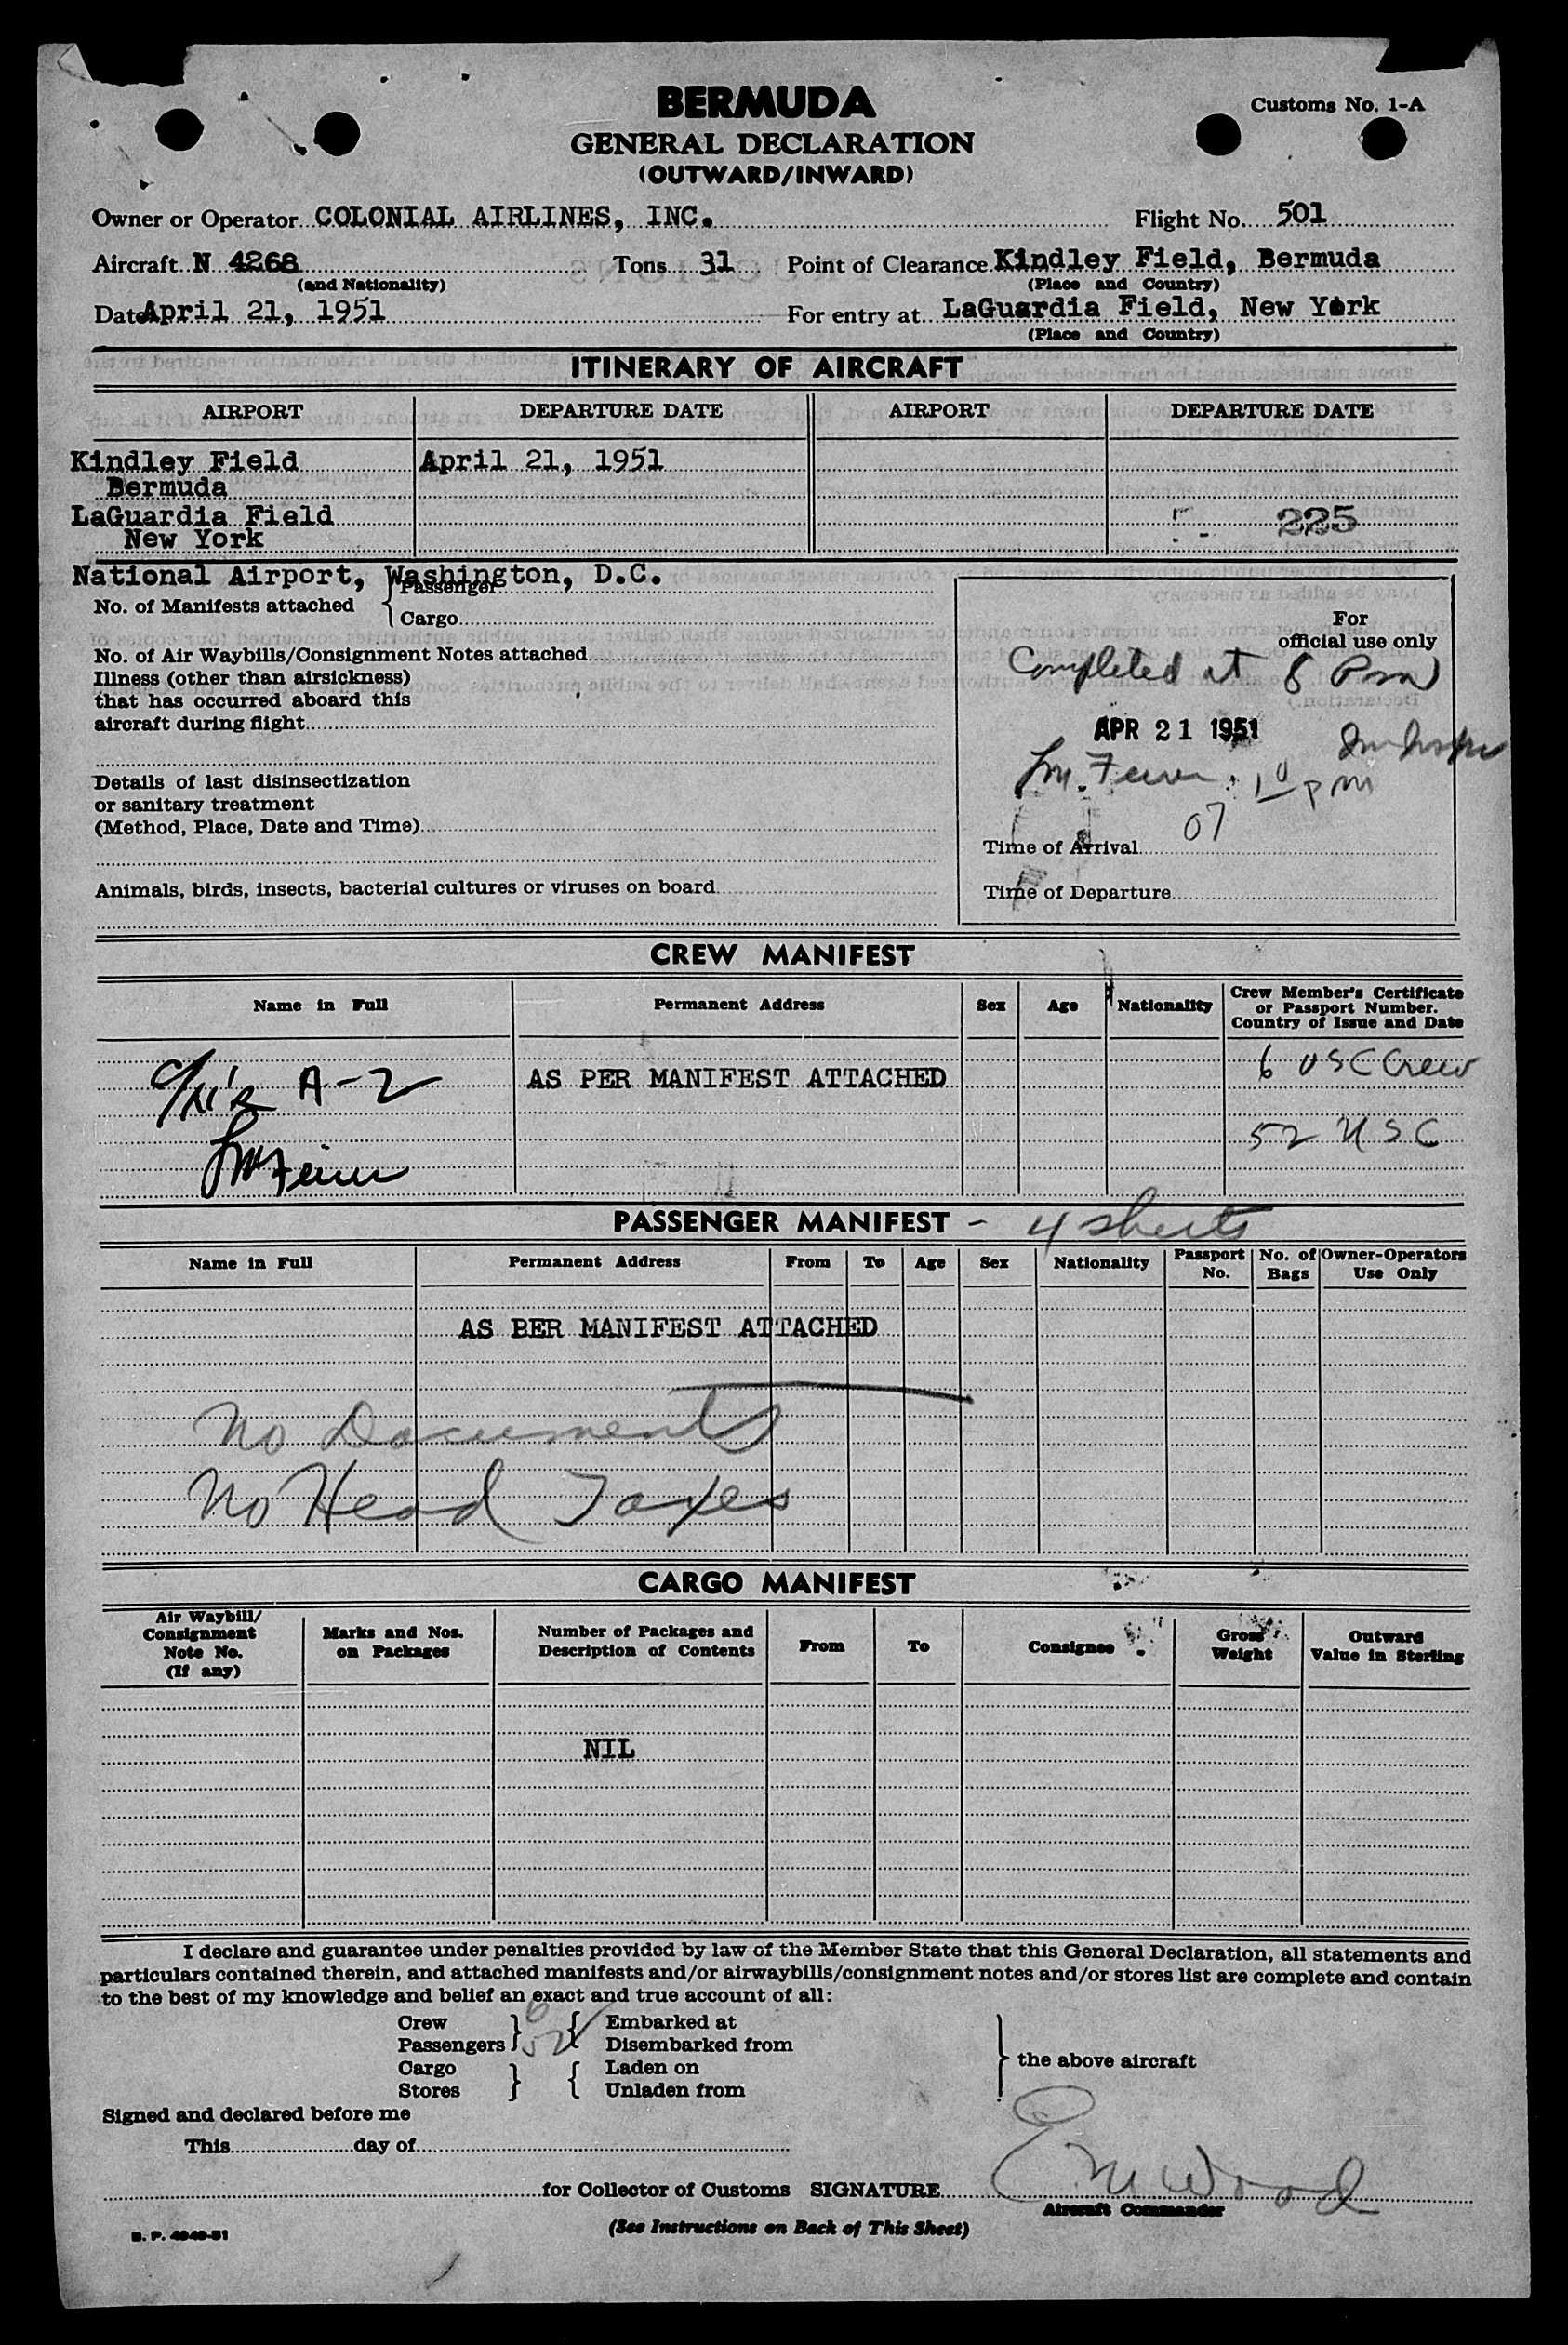 BERMUDA
Customs No. 1-A
GENERAL DECLARATION
(OUTWARD/INWARD)
Owner or Operator COLONIAL AIRLINES, INC. Flight No. 501
Aircraft N 4268 Tons 31 Point of Clearance Kindley Field, Bermuda
(and Nationality) (Place and Country)
Date April 21, 1951 For entry at LaGuardia Field, New York
(Place and Country)
ITINERARY OF AIRCRAFT
AIRPORT DEPARTURE DATE AIRPORT DEPARTURE DATE
Kindley Field April 21, 1951
Bermuda
LaGuardia Field 225
New York
National Airport, Washington, D.C.
No. of Manifests attached { Passenger
Cargo
No. of Air Waybills/Consignment Notes attached
Illness (other than airsickness)
that has occurred aboard this
aircraft during flight
Details of last disinsectization
or sanitary treatment
(Method, Place, Date and Time)
Animals, birds, insects, bacterial cultures or viruses on board
For
official use only
Completed at 8 Pm
APR 21 1951
pm
07
Time of Arrival
Time of Departure
CREW MANIFEST
Name in Full Permanent Address Sex Age Nationality Crew Member's Certificate
or Passport Number.
Country of Issue and Date
6 USC Crew
A-2 AS PER MANIFEST ATTACHED
52 USC
PASSENGER MANIFEST - 4 sheets
Name in Full Permanent Address From To Age Sex Nationality Passport No. No. of Bags Owner-Operators Use Only
AS PER MANIFEST ATTACHED
No Documents
No Head Taxes
CARGO MANIFEST
Air Waybill/
Consignment
Note No.
(If any) Marks and Nos.
on Packages Number of Packages and
Description of Contents From To Consignee Gross
Weight Outward
Value in Sterling
NIL
I declare and guarantee under penalties provided by law of the Member State that this General Declaration, all statements and
particulars contained therein, and attached manifests and/or airwaybills/consignment notes and/or stores list are complete and contain
to the best of my knowledge and belief an exact and true account of all:
Crew } 6 { Embarked at
Passengers } 52 { Disembarked from
Cargo } { Laden on } the above aircraft
Stores } { Unladen from
Signed and declared before me
This day of
for Collector of Customs SIGNATURE E M Wood
Aircraft Commander
(See Instructions on Back of This Sheet)
B. P. 4949-51